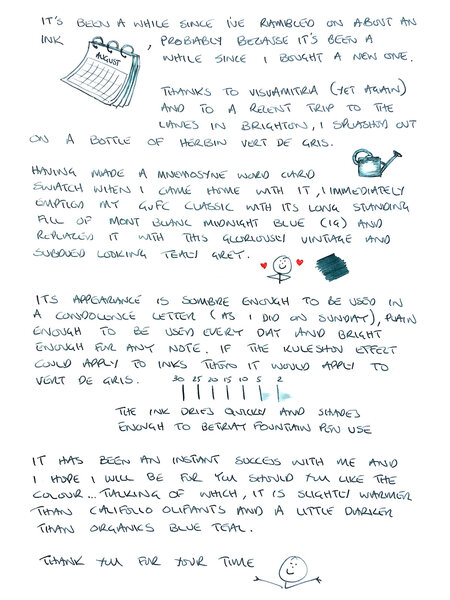 IT'S BEEN A WHILE SINCE I'VE RAMBLED ON ABOUT AN
INK , PROBABLY BECAUSE IT'S BEEN A
AUGUST
WHILE SINCE I BOUGHT A NEW ONE.
THANKS TO VISVAMITRA (YET AGAIN)
AND TO A RECENT TRIP TO THE
LANES IN BRIGHTON, I SPLASHED OUT
ON A BOTTLE OF HERBIN VERT DE GRIS.
HAVING MADE A MNEMOSYNE WORD CARD
SWATCH WHEN I CAME HOME WITH IT, I IMMEDIATELY
EMPTIED MY GVFC CLASSIC WITH ITS LONG STANDING
FILL OF MONT BLANK MIDNIGHT BLUE (IG) AND
REPLACED IT WITH THIS GLORIOUSLY VINTAGE AND
SUBDUED LOOKING TEALY GREY.
ITS APPEARANCE IS SOMBRE ENOUGH TO BE USED IN
A CONDOLENCE LETTER (AS I DID ON SUNDAY), PLAIN
ENOUGH TO BE USED EVERY DAY AND BRIGHT
ENOUGH FOR ANY NOTE. IF THE KULESHOV EFFECT
COULD APPLY TO INKS THEN IT WOULD APPLY TO
VERT DE GRIS.
30 25 20 15 10 5 2
THE INK DRIES QUICKLY AND SHADES
ENOUGH TO BETRAY FOUNTAIN PEN USE
IT HAS BEEN AN INSTANT SUCCESS WITH ME AND
I HOPE I WILL BE FOR YOU SHOULD YOU LIKE THE
COLOUR... TALKING OF WHICH, IT IS SLIGHTLY WARMER
THAN CALIFOLIO OLIFANTS AND A LITTLE DARKER
THAN ORGANICS BLUE TEAL.
THANK YOU FOR YOUR TIME